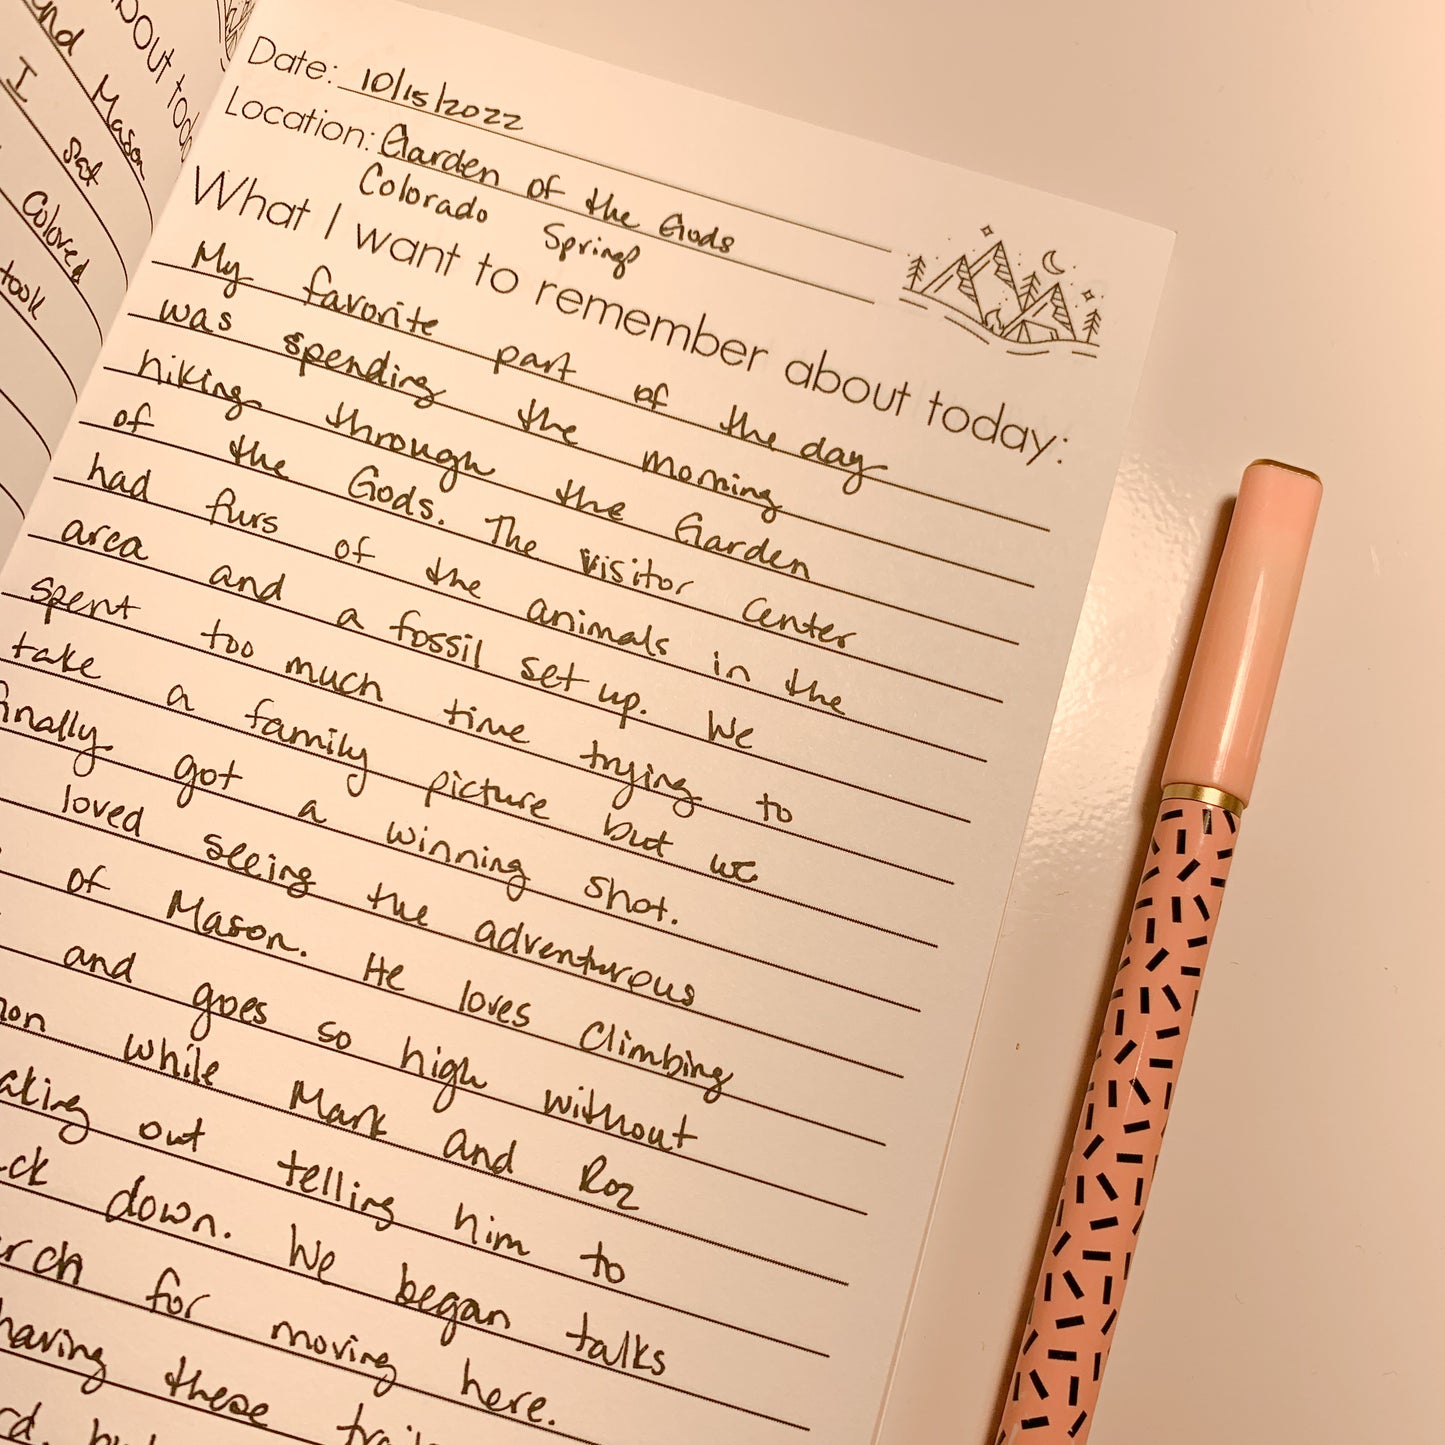 about today
and Mason
I sat
colored
took
Date: 10/15/2022
Location: Garden of the Gods
Colorado Springs
What I want to remember about today:
My favorite part of the day
was spending the morning
hiking through the Garden
of the Gods. The visitor center
had furs of the animals in the
area and a fossil set up. We
spent too much time trying to
take a family picture but we
finally got a winning shot.
loved seeing the adventurous
of Mason. He loves climbing
and goes so high without
while Mark and Roz
out telling him to
down. We began talks
for moving here.
having these